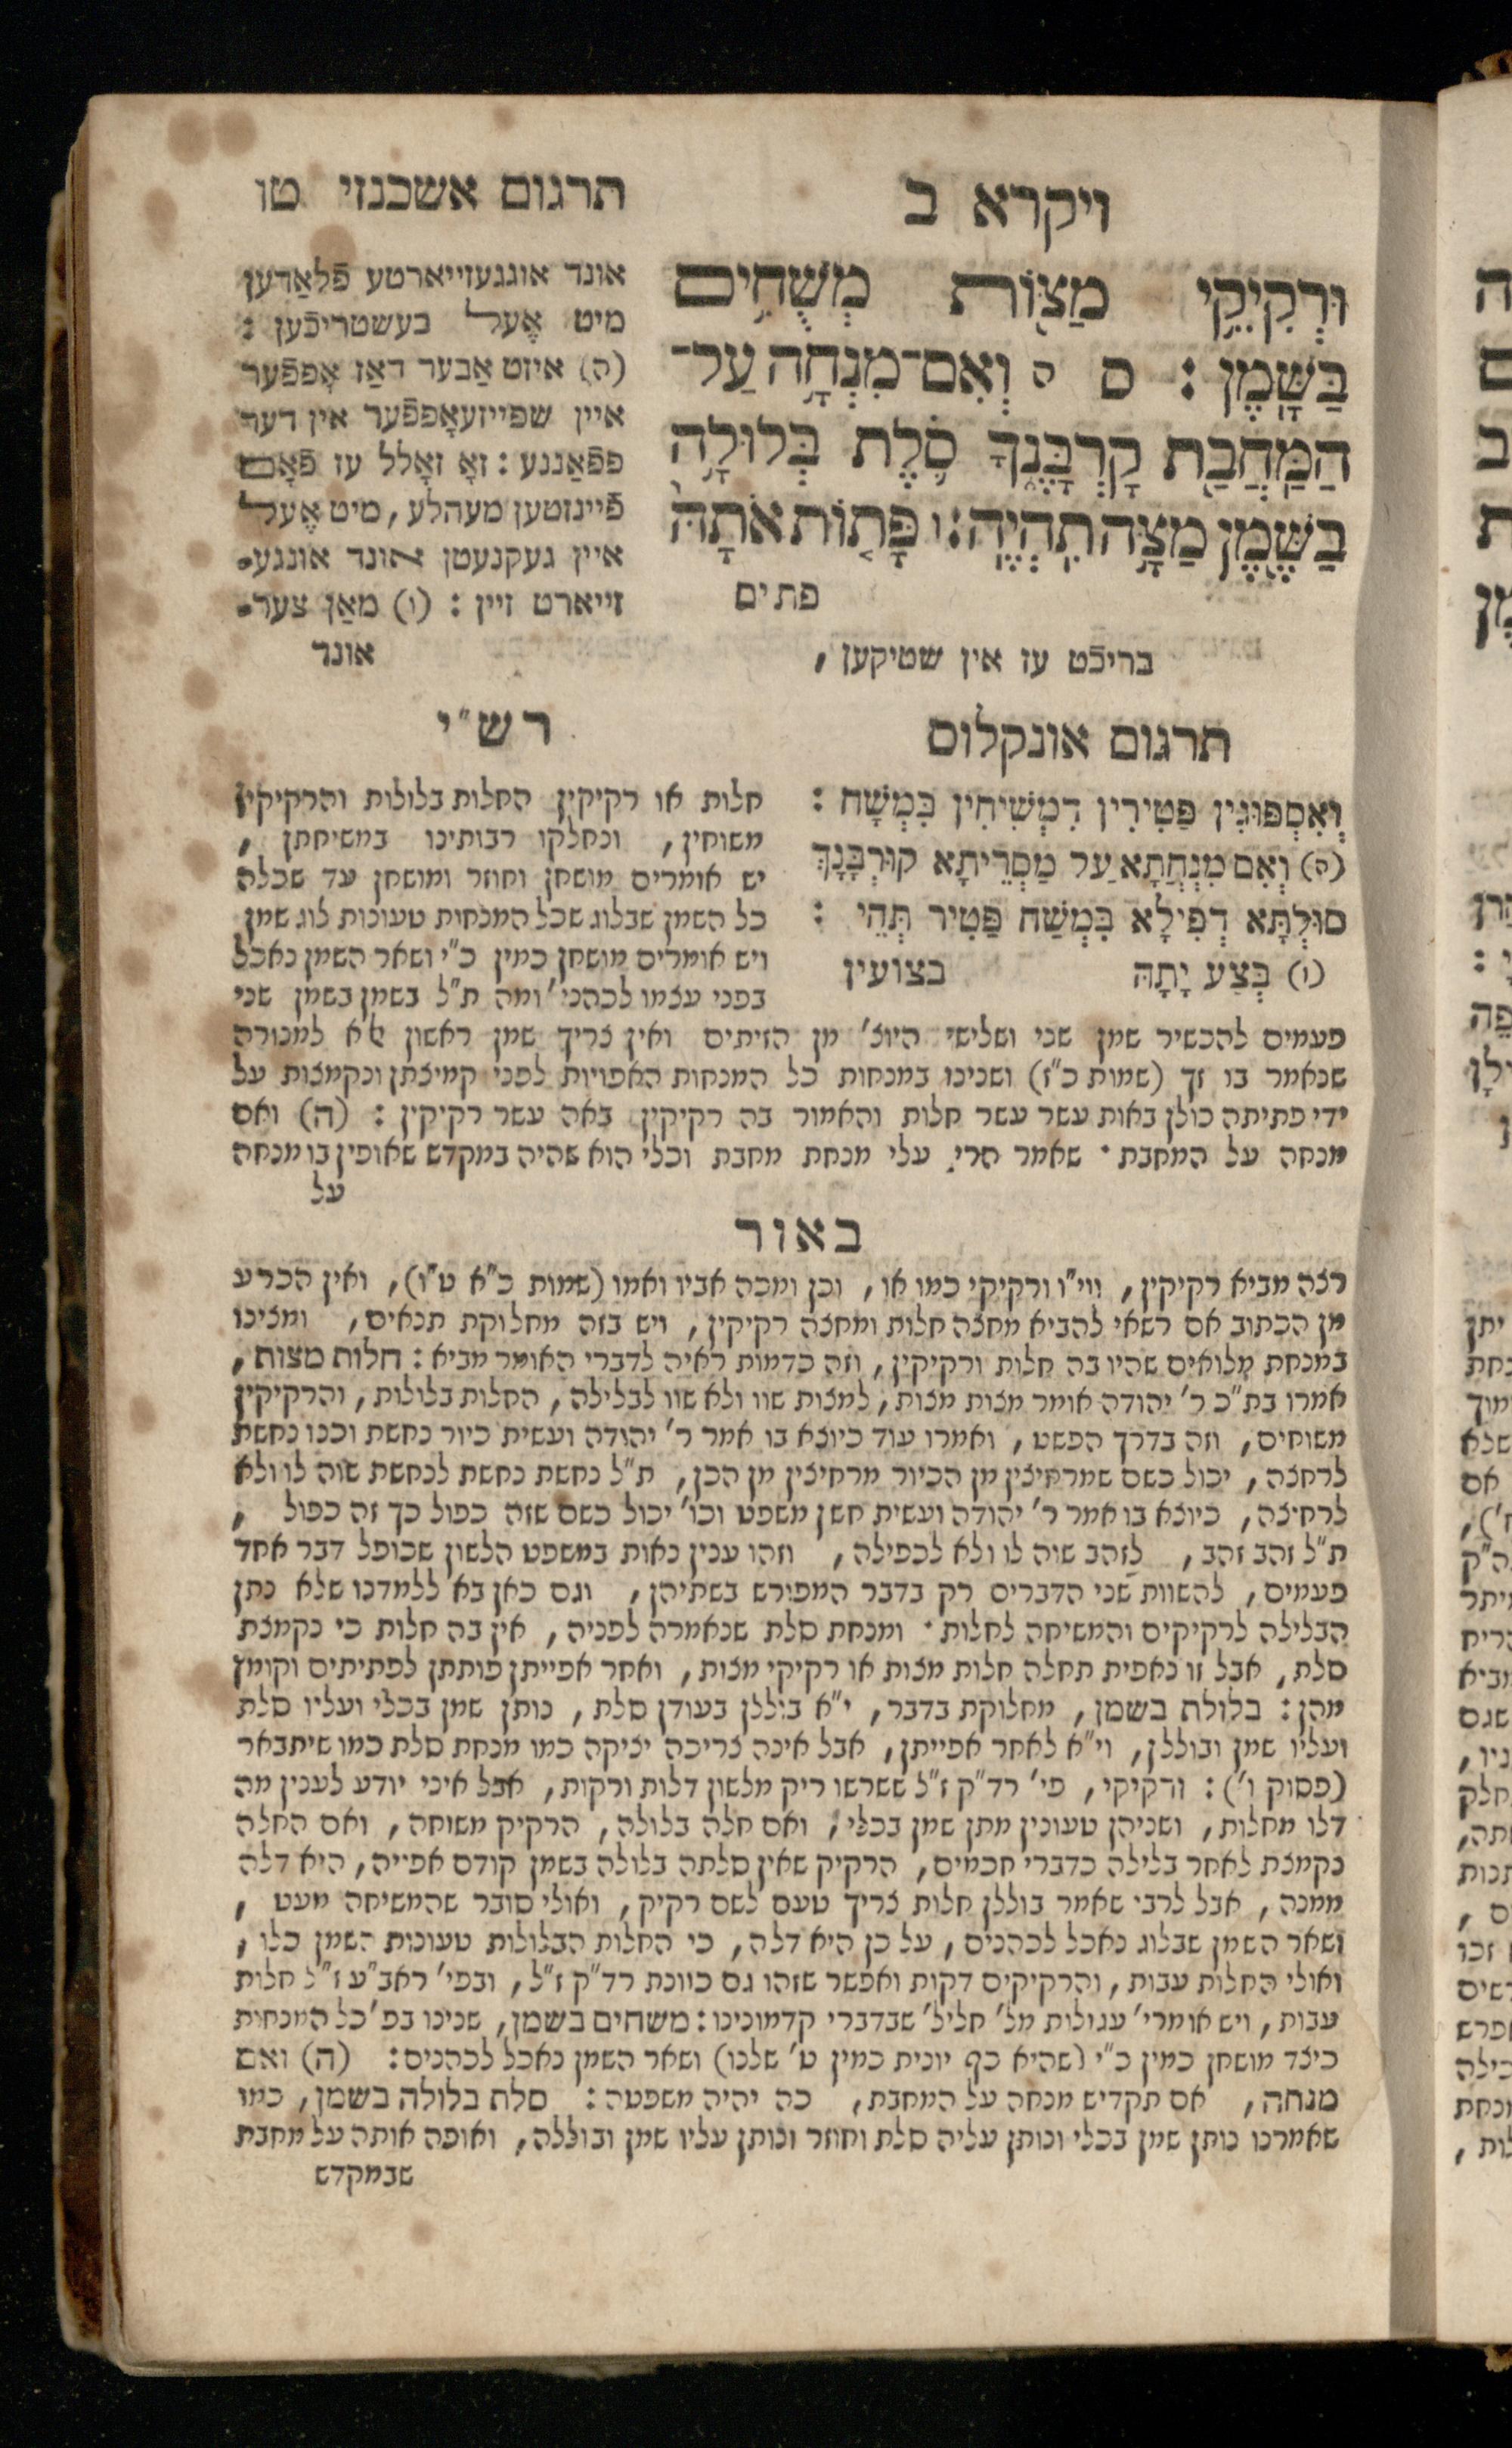 ויקרא ב
תרגום אשכנזי טו
וּרְקִיקֵי מַצּוֹת מְשֻׁחִים
בַּשָּׁמֶן : ס ה וְאִם־מִנְחָה עַל־
הַמַּחֲבַת קָרְבָּנֶךָ סֹלֶת בְּלוּלָה
בַשֶּׁמֶן מַצָּה תִהְיֶה : ו פָּתוֹת אֹתָהּ
פתים
אונד אונגעזייארטע פֿלאַדען
מיט אָעל בעשטריכֿען :
(ה) איזט אַבער דאַז אָפפֿער
איין שפייזעאָפפֿער אין דער
פפֿאַננע : זאָ זאָלל עז פֿאָם
פֿיינזטען מעהלע, מיט אָעל
איין געקנעטן אונד אונגע־
זייארט זיין : (ו) מאַן צער־
בריכֿט עז אין שטיקען ,
אונד
תרגום אונקלוס
וְאִסְפּוּגִין פַּטִירִין דִמְשִׁיחִין בִּמְשָׁח :
(ה) וְאִם מִנְחֲתָא עַל מַסְרֵיתָא קוּרְבָּנָךְ
סוּלְתָּא דְפִילָא בִּמְשַׁח פַּטִיר תְּהֵי :
(ו) בְּצַע יָתָהּ בצועין
רש״י
חלות או רקיקין החלות בלולות והרקיקין
משוחין, ונחלקו רבותינו במשיחתן ,
יש אומרים מושחן וחוזר ומושחן עד שכלה
כל השמן שבלוג שכל המנחות טעונות לוג שמן
ויש אומרים מושחן כמין כ״י ושאר השמן נאכל
בפני עצמו לכהני׳ ומה ת״ל בשמן בשמן שני
פעמים להכשיר שמן שני ושלישי היוצ׳ מן הזיתים ואין צריך שמן ראשון אלא למנורה
שנאמר בו זך (שמות כ״ז) ושנינו במנחות כל המנחות האפויות לפני קמיצתן ונקמצות על
ידי פתיתה כולן באות עשר עשר חלות והאמור בה רקיקין באה עשר רקיקין : (ה) ואם
מנחה על המחבת · שאמר הרי עלי מנחת מחבת וכלי הוא שהיה במקדש שאופין בו מנחה
על
באור
רצה מביא רקיקין, ווי״ו ורקיקי כמו או, וכן ומכה אביו ואמו (שמות כ״א ט״ו), ואין הכרע
מן הכתוב אם רשאי להביא מחצה חלות ומחצה רקיקין, ויש בזה מחלוקת תנאים, ומצינו
במנחת מלואים שהיו בה חלות ורקיקין, וזה כדמות ראיה לדברי האומר מביא : חלות מצות,
אמרו בת״כ ר׳ יהודה אומר מצות מצות, למצות שוו ולא שוו לבלילה, החלות בלולות, והרקיקין
משוחים, וזה בדרך הפשט, ואמרו עוד כיוצא בו אמר ר׳ יהודה ועשית כיור נחשת וכנו נחשת
לרחצה, יכול כשם שמרחיצין מן הכיור מרחיצין מן הכן, ת״ל נחשת נחשת לנחשת שוה לו ולא
לרחיצה, כיוצא בו אמר ר׳ יהודה ועשית חשן משפט וכו׳ יכול כשם שזה כפול כך זה כפול ,
ת״ל זהב זהב, לזהב שוה לו ולא לכפילה, וזהו ענין נאות במשפט הלשון שכופל דבר אחד
פעמים, להשוות שני הדברים רק בדבר המפורש בשתיהן, וגם כאן בא ללמדנו שלא נתן
הבלילה לרקיקים והמשיחה לחלות · ומנחת סלת שנאמרה לפניה, אין בה חלות כי נקמצת
סלת, אבל זו נאפית תחלה חלות מצות או רקיקי מצות, ואחר אפייתן פותתן לפתיתים וקומץ
מהן : בלולת בשמן, מחלוקת בדבר, י״א בוללן בעודן סלת, נותן שמן בכלי ועליו סלת
ועליו שמן ובוללן, וי״א לאחר אפייתן, אבל אינה צריכה יציקה כמו מנחת סלת כמו שיתבאר
(פסוק ו׳) : ורקיקי, פי׳ רד״ק ז״ל ששרשו ריק מלשון דלות ורקות, אבל איני יודע לענין מה
דלו מחלות, ושניהן טעונין מתן שמן בכלי, ואם חלה בלולה, הרקיק משוחה, ואם החלה
נקמצת לאחר בלילה כדברי חכמים, הרקיק שאין סלתה בלולה בשמן קודם אפייה, היא דלה
ממנה, אבל לרבי שאמר בוללן חלות צריך טעם לשם רקיק, ואולי סובר שהמשיחה מעט ,
ושאר השמן שבלוג נאכל לכהנים, על כן היא דלה, כי החלות הבלולות טעונות השמן כלו ,
ואולי החלות עבות, והרקיקים דקות ואפשר שזהו גם כוונת רד״ק ז״ל, ובפי׳ ראב״ע ז״ל חלות
עבות, ויש אומרי׳ עגולות מל׳ חליל׳ שבדברי קדמונינו : משחים בשמן, שנינו בפ׳ כל המנחות
כיצד מושחן כמין כ״י (שהיא כף יונית כמין ט׳ שלנו) ושאר השמן נאכל לכהנים : (ה) ואם
מנחה, אם תקדיש מנחה על המחבת, כה יהיה משפטה : סלת בלולה בשמן, כמו
שאמרנו נותן שמן בכלי ונותן עליה סלת וחוזר ונותן עליו שמן ובוללה, ואופה אותה על מחבת
שבמקדש